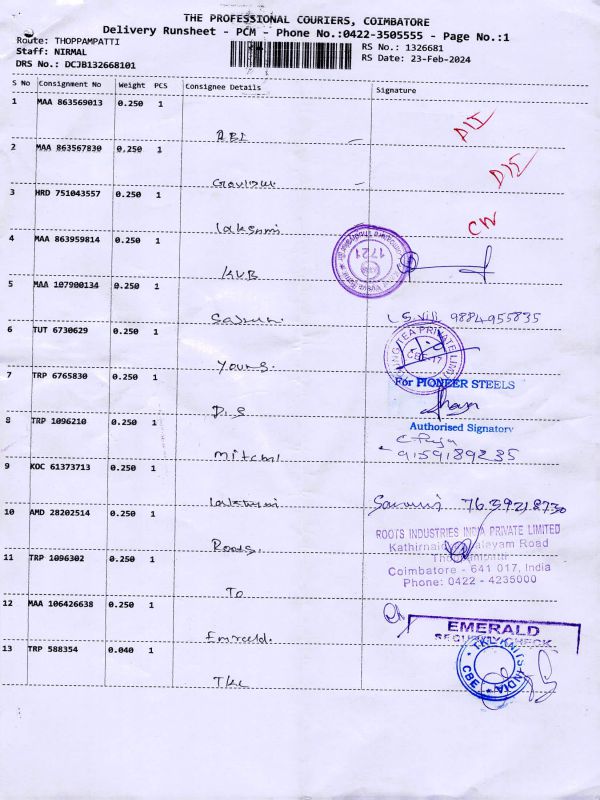 THE PROFESSIONAL COURIERS, COIMBATORE
Delivery Runsheet - PCM - Phone No.:0422-3505555 - Page No.:1
Route: THOPPAMPATTI
Staff: NIRMAL
DRS No.: DCJB132668101
RS No.: 1326681
RS Date: 23-Feb-2024
S No Consignment No Weight PCS Consignee Details Signature
1 MAA 863569013 0.250 1
2 MAA 863567830 0.250 1
3 HRD 751043557 0.250 1
Lakshmi CW
4 MAA 863959814 0.250 1
KVB
1721
5 MAA 107900134 0.250 1
9884955835
6 TUT 6730629 0.250 1
Young.
TEA PRIVATE LIMI
CBE-17
7 TRP 6765830 0.250 1
For PIONEER STEELS
D.S
Authorised Signatory
8 TRP 1096210 0.250 1
9159189235
9 KOC 61373713 0.250 1
10 AMD 28202514 0.250 1
Roots.
ROOTS INDUSTRIES INDIA PRIVATE LIMITED
Road
Coimbatore - 641 017, India
Phone: 0422 - 4235000
11 TRP 1096302 0.250 1
To
12 MAA 106426638 0.250 1
Emerald.
EMERALD
SECURITY CHECK
13 TRP 588354 0.040 1
KNITS INDIA
CBE